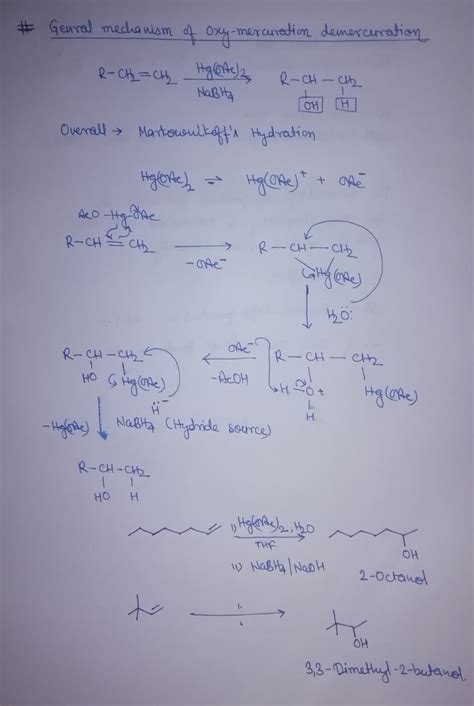 # Genral mechanism of Oxy-mercuration demercuration
R-CH=CH2 Hg(OAc)2 NaBH4 R-CH-CH2
OH H
Overall → Markownikoff's Hydration
Hg(OAc)2 ⇌ Hg(OAc)+ + OAc-
AcO-Hg-OAc
R-CH=CH2 -OAc- R-CH-CH2
Hg(OAc)
H2Ö:
R-CH-CH2 OAc- -AcOH R-CH-CH2
HO Hg(OAc) H-O+ Hg(OAc)
H- H
-Hg(OAc) NaBH4 (Hydride source)
R-CH-CH2
HO H
i) Hg(OAc)2, H2O
THF
ii) NaBH4/NaOH
OH
2-Octanol
OH
3,3-Dimethyl-2-butanol.